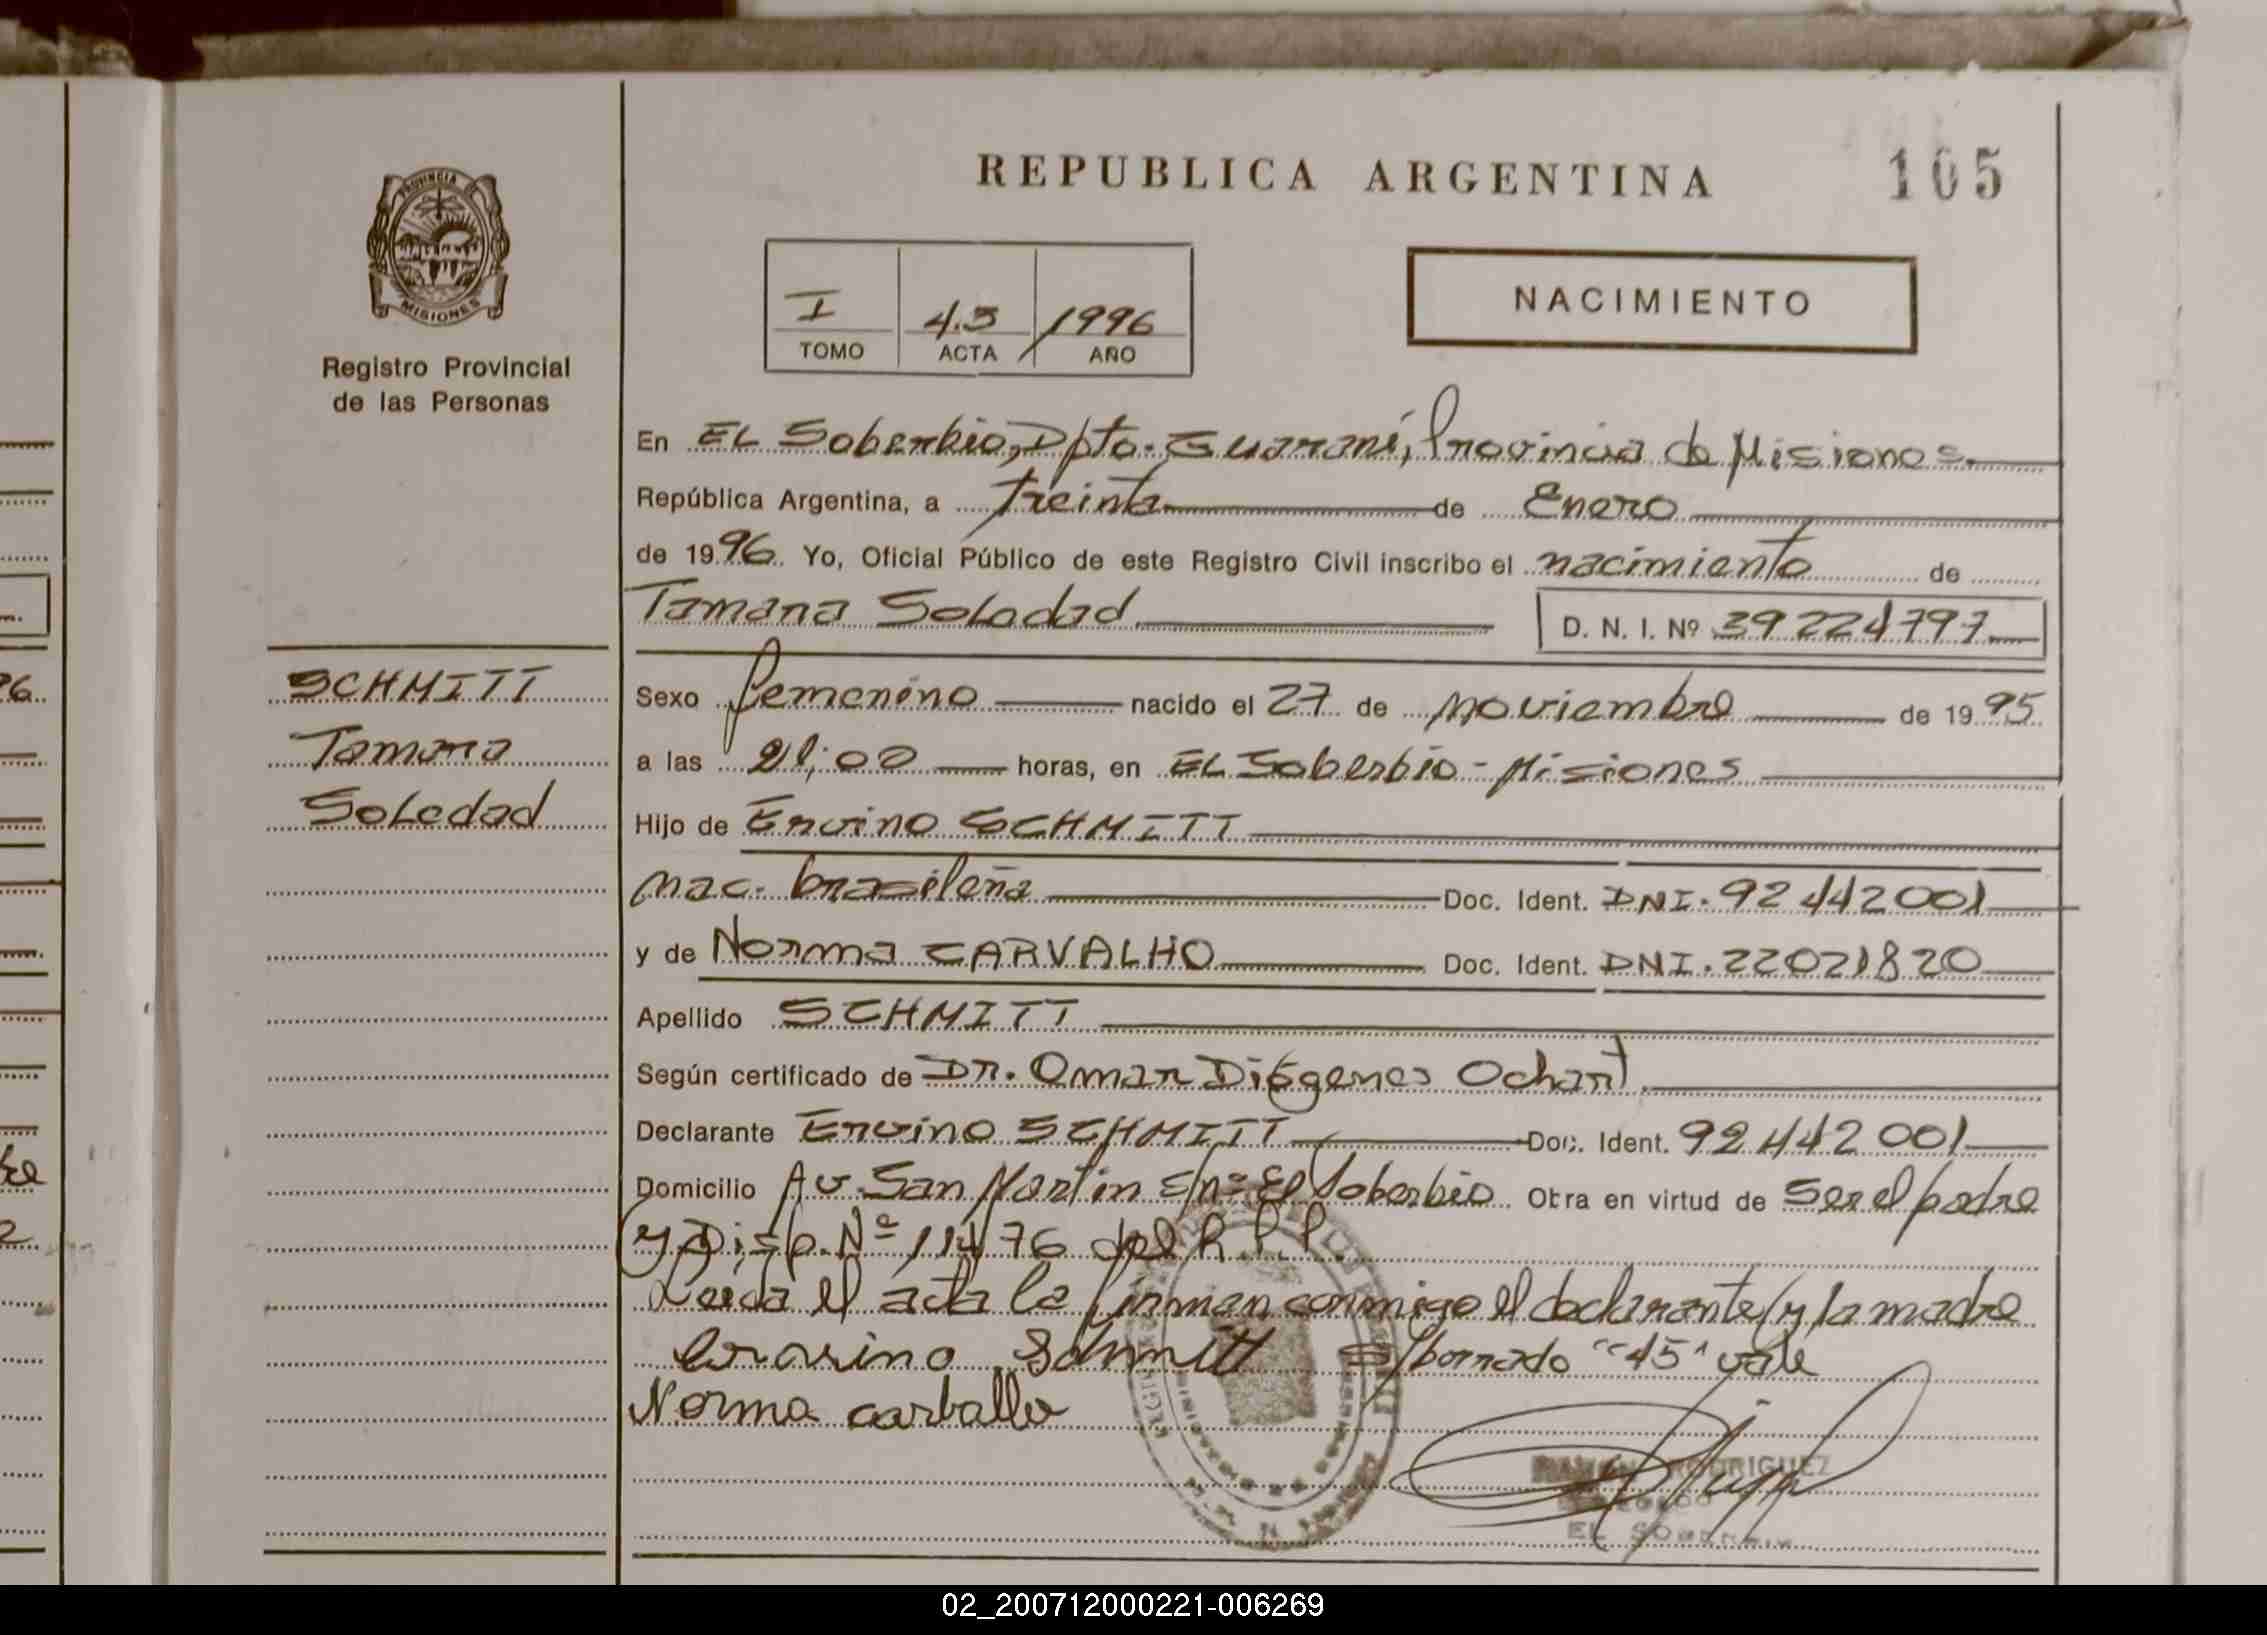 REPUBLICA ARGENTINA
105
PROVINCIA DE
MISIONES
Registro Provincial
de las Personas
I 43 1996
TOMO ACTA AÑO
NACIMIENTO
En EL Soberbio, Dpto. Guaraní, Provincia de Misiones.
República Argentina, a treinta de Enero
de 1996. Yo, Oficial Público de este Registro Civil inscribo el nacimiento de
Tamara Soledad D. N. I. Nº 39224797
SCHMITT
Tamara
Soledad
Sexo femenino nacido el 27 de noviembre de 1995
a las 21;00 horas, en EL Soberbio - Misiones
Hijo de Ervino SCHMITT
nac. brasileña Doc. Ident. DNI. 92442001
y de Norma CARVALHO Doc. Ident. DNI. 22021820
Apellido SCHMITT
Según certificado de Dr. Omar Diógenes Ochart
Declarante Ervino SCHMITT Doc. Ident. 92442001
Domicilio Av. San Martin S/nº El Soberbio Obra en virtud de Ser el padre
y Disp. Nº 114/76 del R.P.P.
Leida el acta la firman conmigo el declarante y la madre
Schmitt S/borrado "45" vale
Norma carballo
RODRIGUEZ
EL
02_200712000221-006269